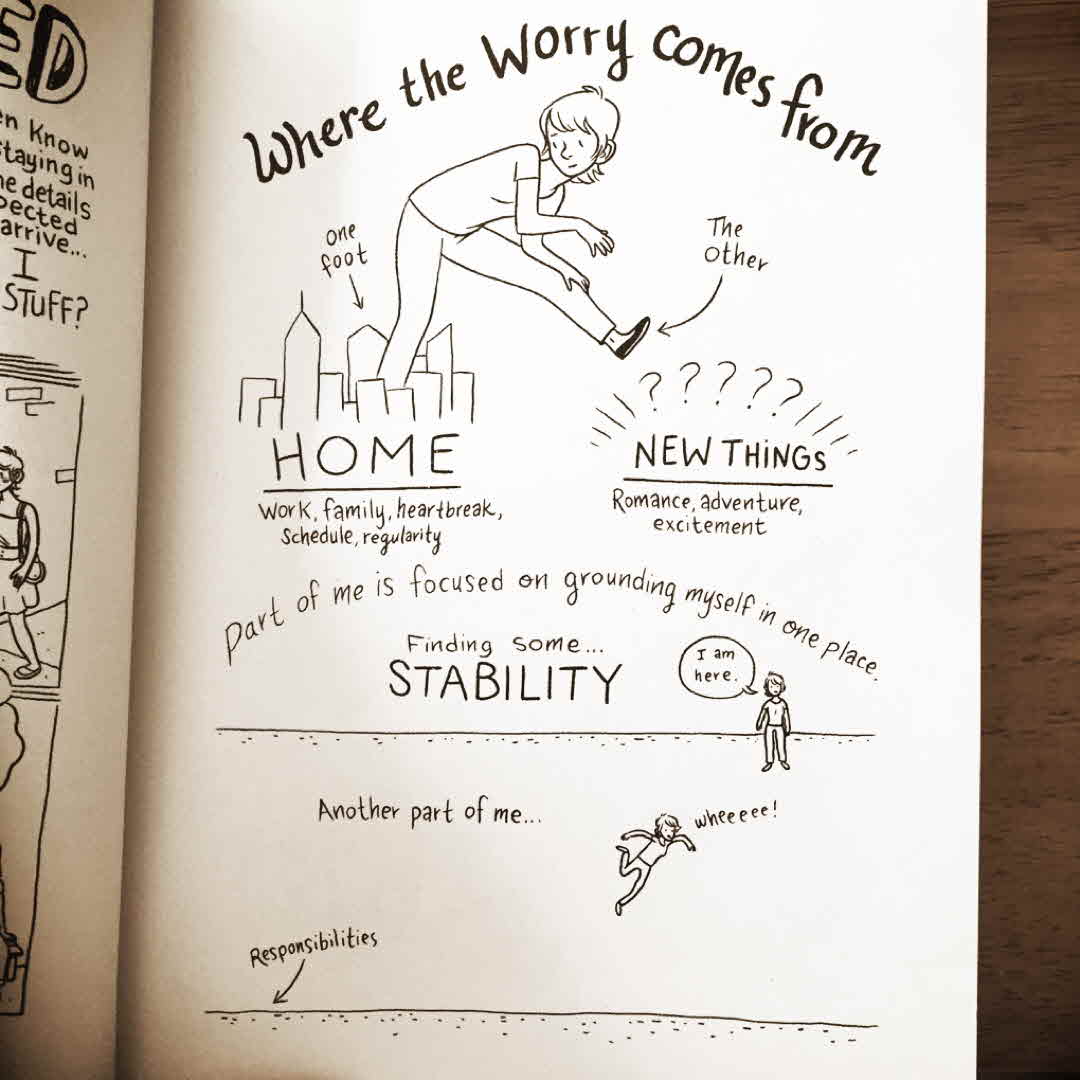 ED
Know
staying in
details
arrive...
I
STUFF?
Where the Worry comes from
one
foot
The
other
? ? ? ? ?
HOME
Work, family, heartbreak,
Schedule, regularity
NEW THINGS
Romance, adventure,
excitement
Part of me is focused on grounding myself in one place.
Finding some...
STABILITY
I am
here.
Another part of me...
wheeeee!
Responsibilities